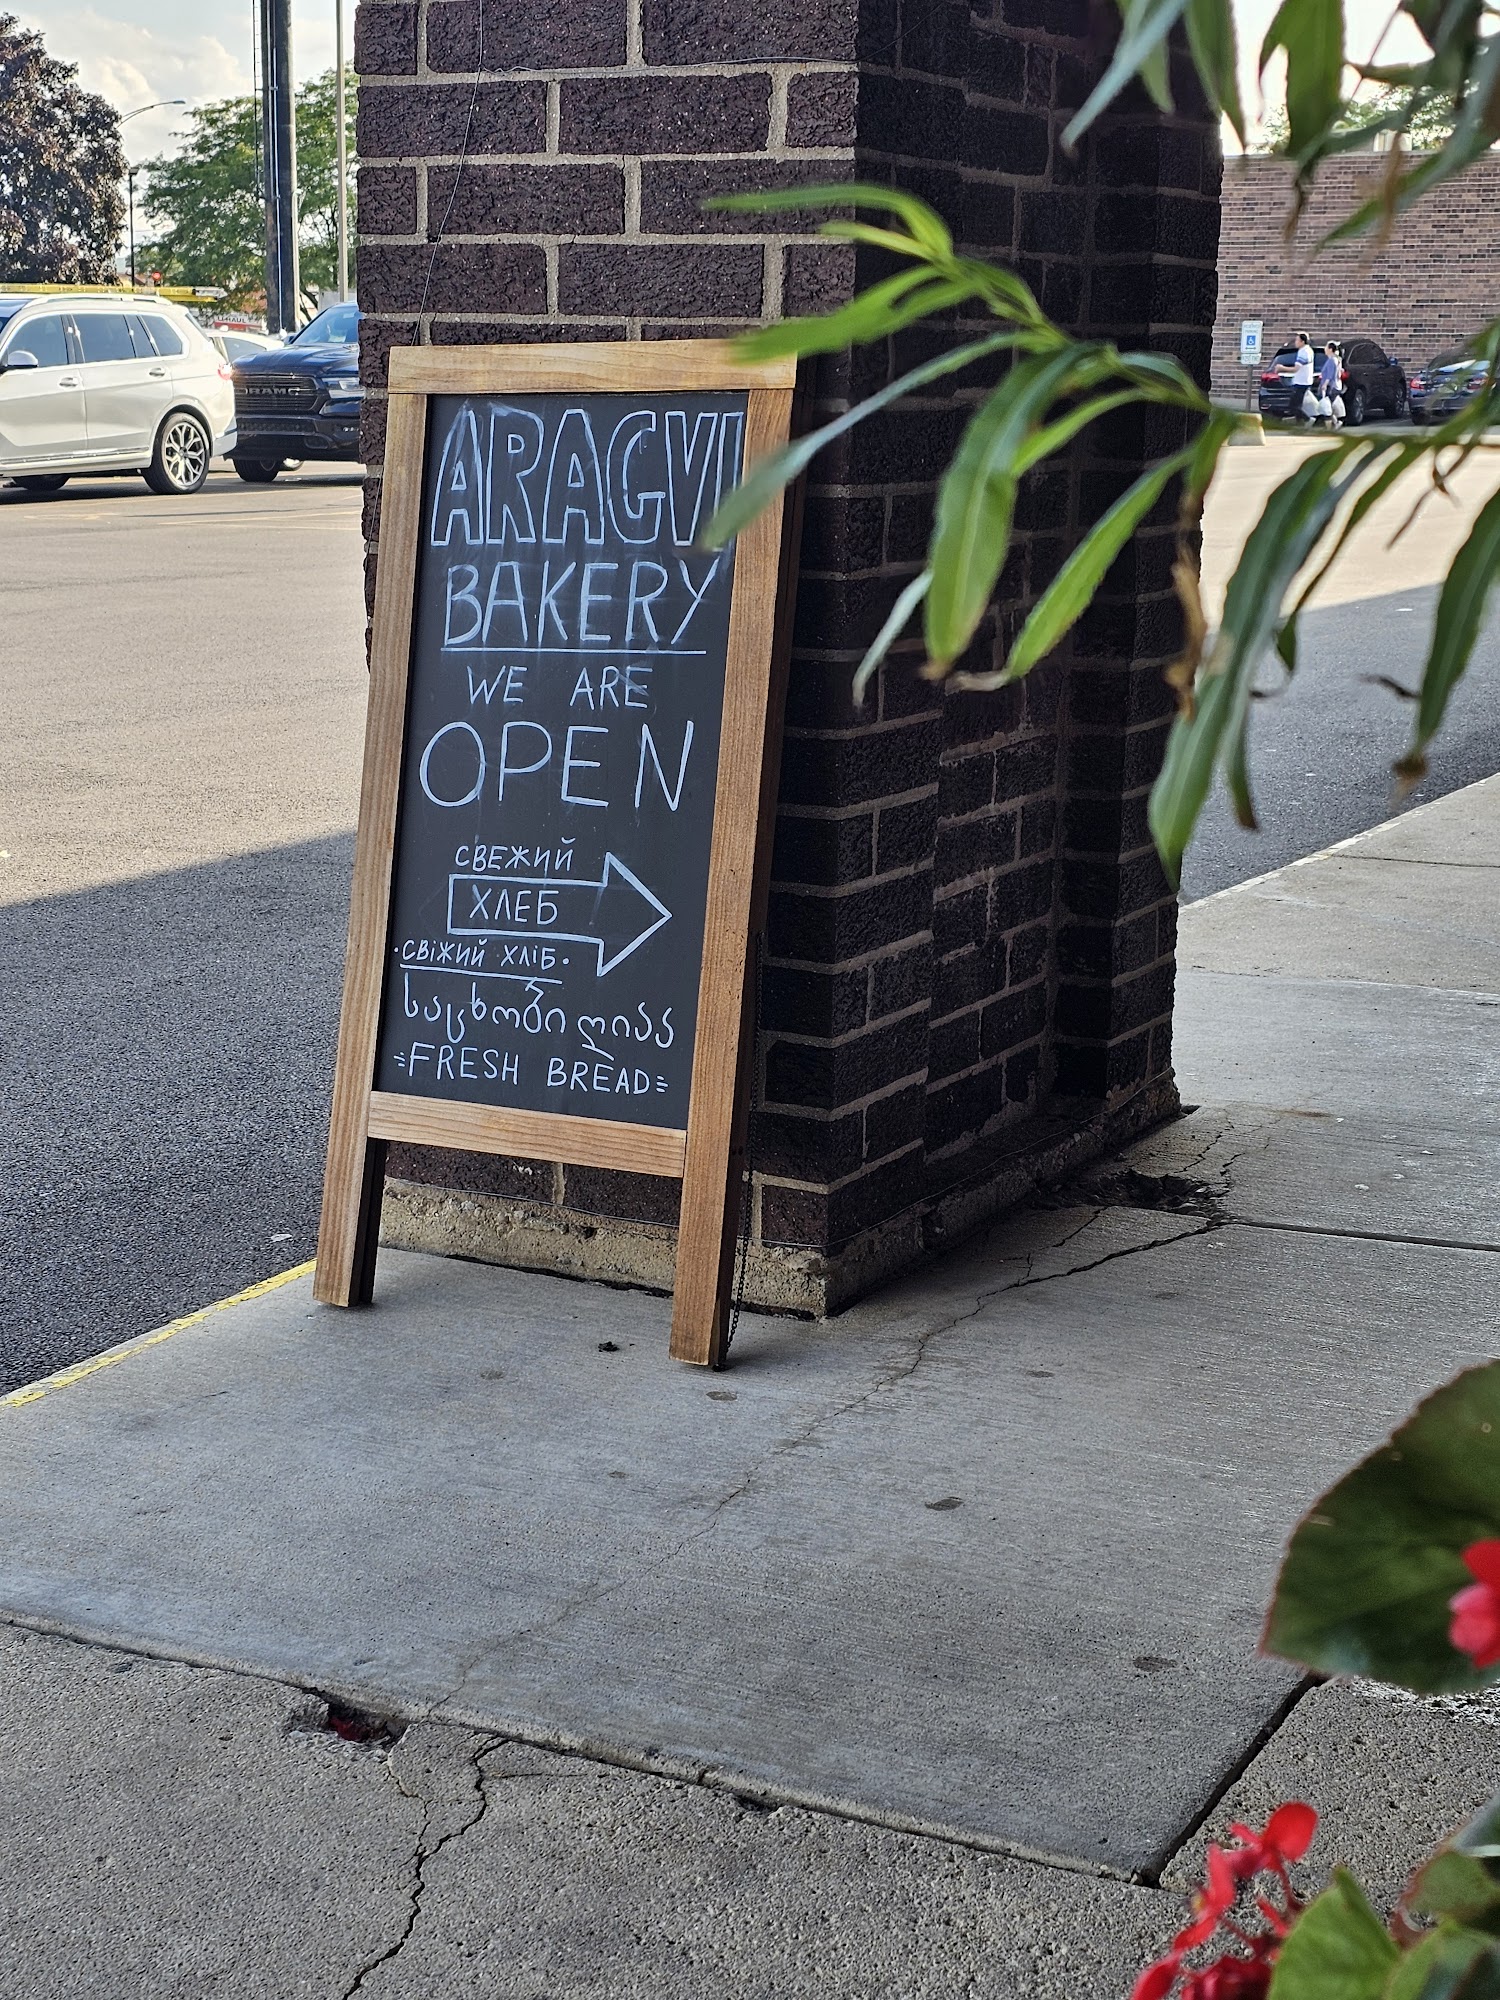 ARAGVI
BAKERY
WE ARE
OPEN
СВЕЖИЙ
ХЛЕБ
·СВІЖИЙ ХЛІБ·
საცხობი ღიაა
FRESH BREAD
RAM
U-HAUL